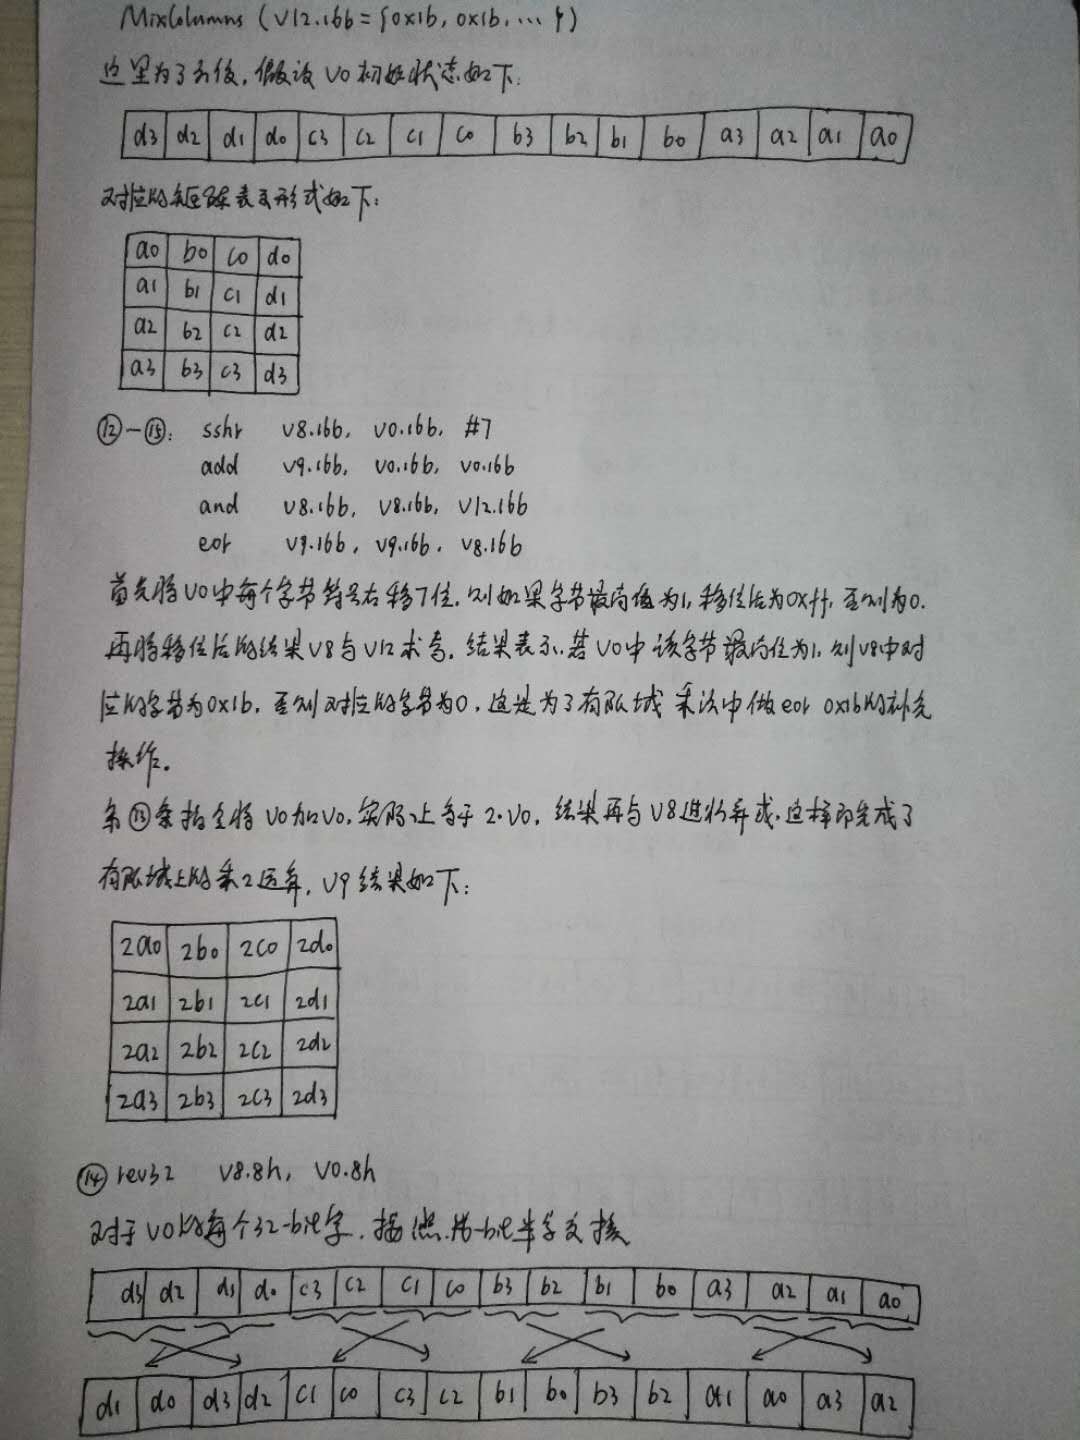 MixColumns (V12.16b = {0x1b, 0x1b, ... })
这里为了方便,假设 V0 初始状态如下:
d3 d2 d1 d0 c3 c2 c1 c0 b3 b2 b1 b0 a3 a2 a1 a0
对应的矩阵表示形式如下:
a0 b0 c0 d0
a1 b1 c1 d1
a2 b2 c2 d2
a3 b3 c3 d3
⑫-⑮: sshr V8.16b, V0.16b, #7
add V9.16b, V0.16b, V0.16b
and V8.16b, V8.16b, V12.16b
eor V9.16b, V9.16b, V8.16b
首先将 V0 中每个字节符号右移7位,则如果字节最高位为1,移位后为0xff,否则为0.
再将移位后的结果 V8 与 V12 求与,结果表示,若 V0 中该字节最高位为1,则V8中对
应的字节为0x1b,否则对应的字节为0,这是为了有限域乘法中做eor 0x1b的补充
操作.
第⑬条指令将 V0 加 V0,实际上等于 2·V0,结果再与 V8 进行异或,这样即完成了
有限域上的乘2运算, V9 结果如下:
2a0 2b0 2c0 2d0
2a1 2b1 2c1 2d1
2a2 2b2 2c2 2d2
2a3 2b3 2c3 2d3
⑭ rev32 V8.8h, V0.8h
对于 V0 的每个32-bit字,按照16-bit半字交换
d3 d2 d1 d0 c3 c2 c1 c0 b3 b2 b1 b0 a3 a2 a1 a0
d1 d0 d3 d2 c1 c0 c3 c2 b1 b0 b3 b2 a1 a0 a3 a2